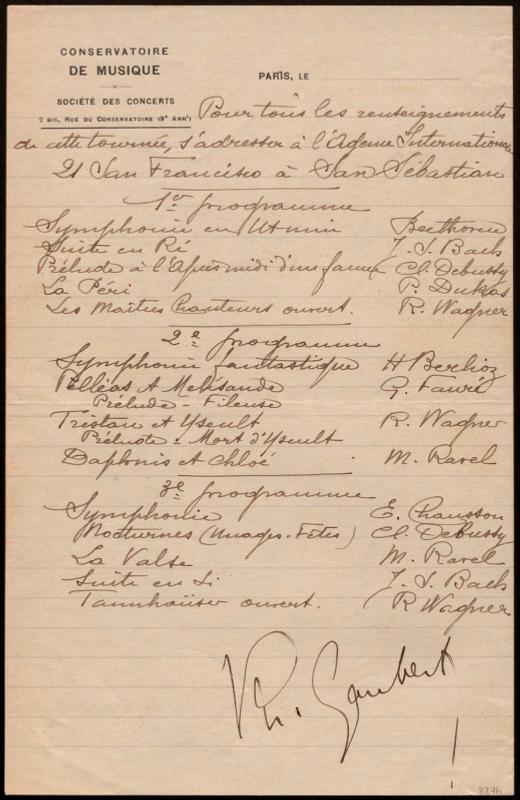 CONSERVATOIRE
DE MUSIQUE
PARIS, LE
SOCIÉTÉ DES CONCERTS
2 BIS, RUE DU CONSERVATOIRE (9e ARRt)
Pour tous les renseignements
de cette tournée, s'adresser à l'Agence Internationale
21 San Francisco à San Sébastian
1er programme
Symphonie en Ut min Beethoven
Suite en Ré J. S. Bach
Prélude à l'Après midi d'un faune Cl. Debussy
La Péri P. Dukas
Les Maîtres Chanteurs ouvert. R. Wagner
2e programme
Symphonie fantastique H Berlioz
Pelléas et Melisande G. Fauré
Prélude - Fileuse
Tristan et Yseult R. Wagner
Prélude - Mort d'Yseult
Daphnis et Chloé M. Ravel
3e programme
Symphonie E. Chausson
Nocturnes (Nuages - Fêtes) Cl. Debussy
La Valse M. Ravel
Suite en Si J. S. Bach
Tannhaüser ouvert. R Wagner
Ph. Gaubert